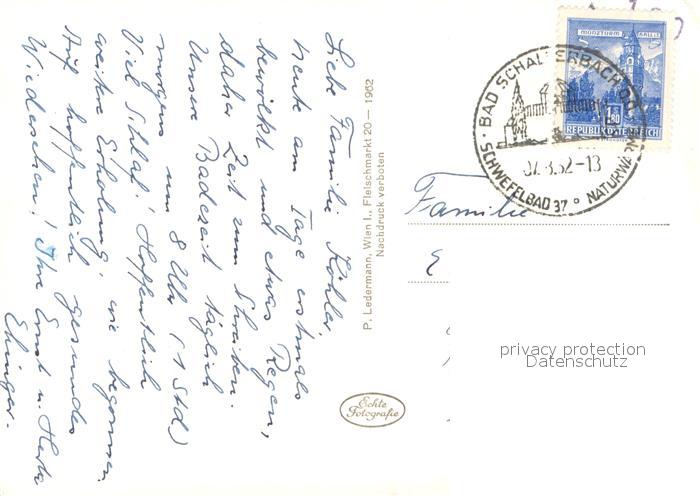 Liebe Familie Köhler
heute am Tage erstmals
bewölkt und etwas Regen,
daher Zeit zum Schreiben.
Unsere Badezeit täglich
morgens um 8 Uhr (1 Std)
Viel Schlaf! Hoffentlich
weitere Erholung, wie begonnen.
Auf hoffentlich gesundes
Wiedersehen! Ihre Ernst u. Herta
Ehinger.
P. Ledermann, Wien I., Fleischmarkt 20 — 1962
Nachdruck verboten
Echte
Fotografie
MÜNZTURM HALL I.T.
S 1.80
REPUBLIK ÖSTERREICH
BAD SCHALLERBACH OÖ
-13
SCHWEFELBAD 37° NATURWARM
Familie
privacy protection
Datenschutz